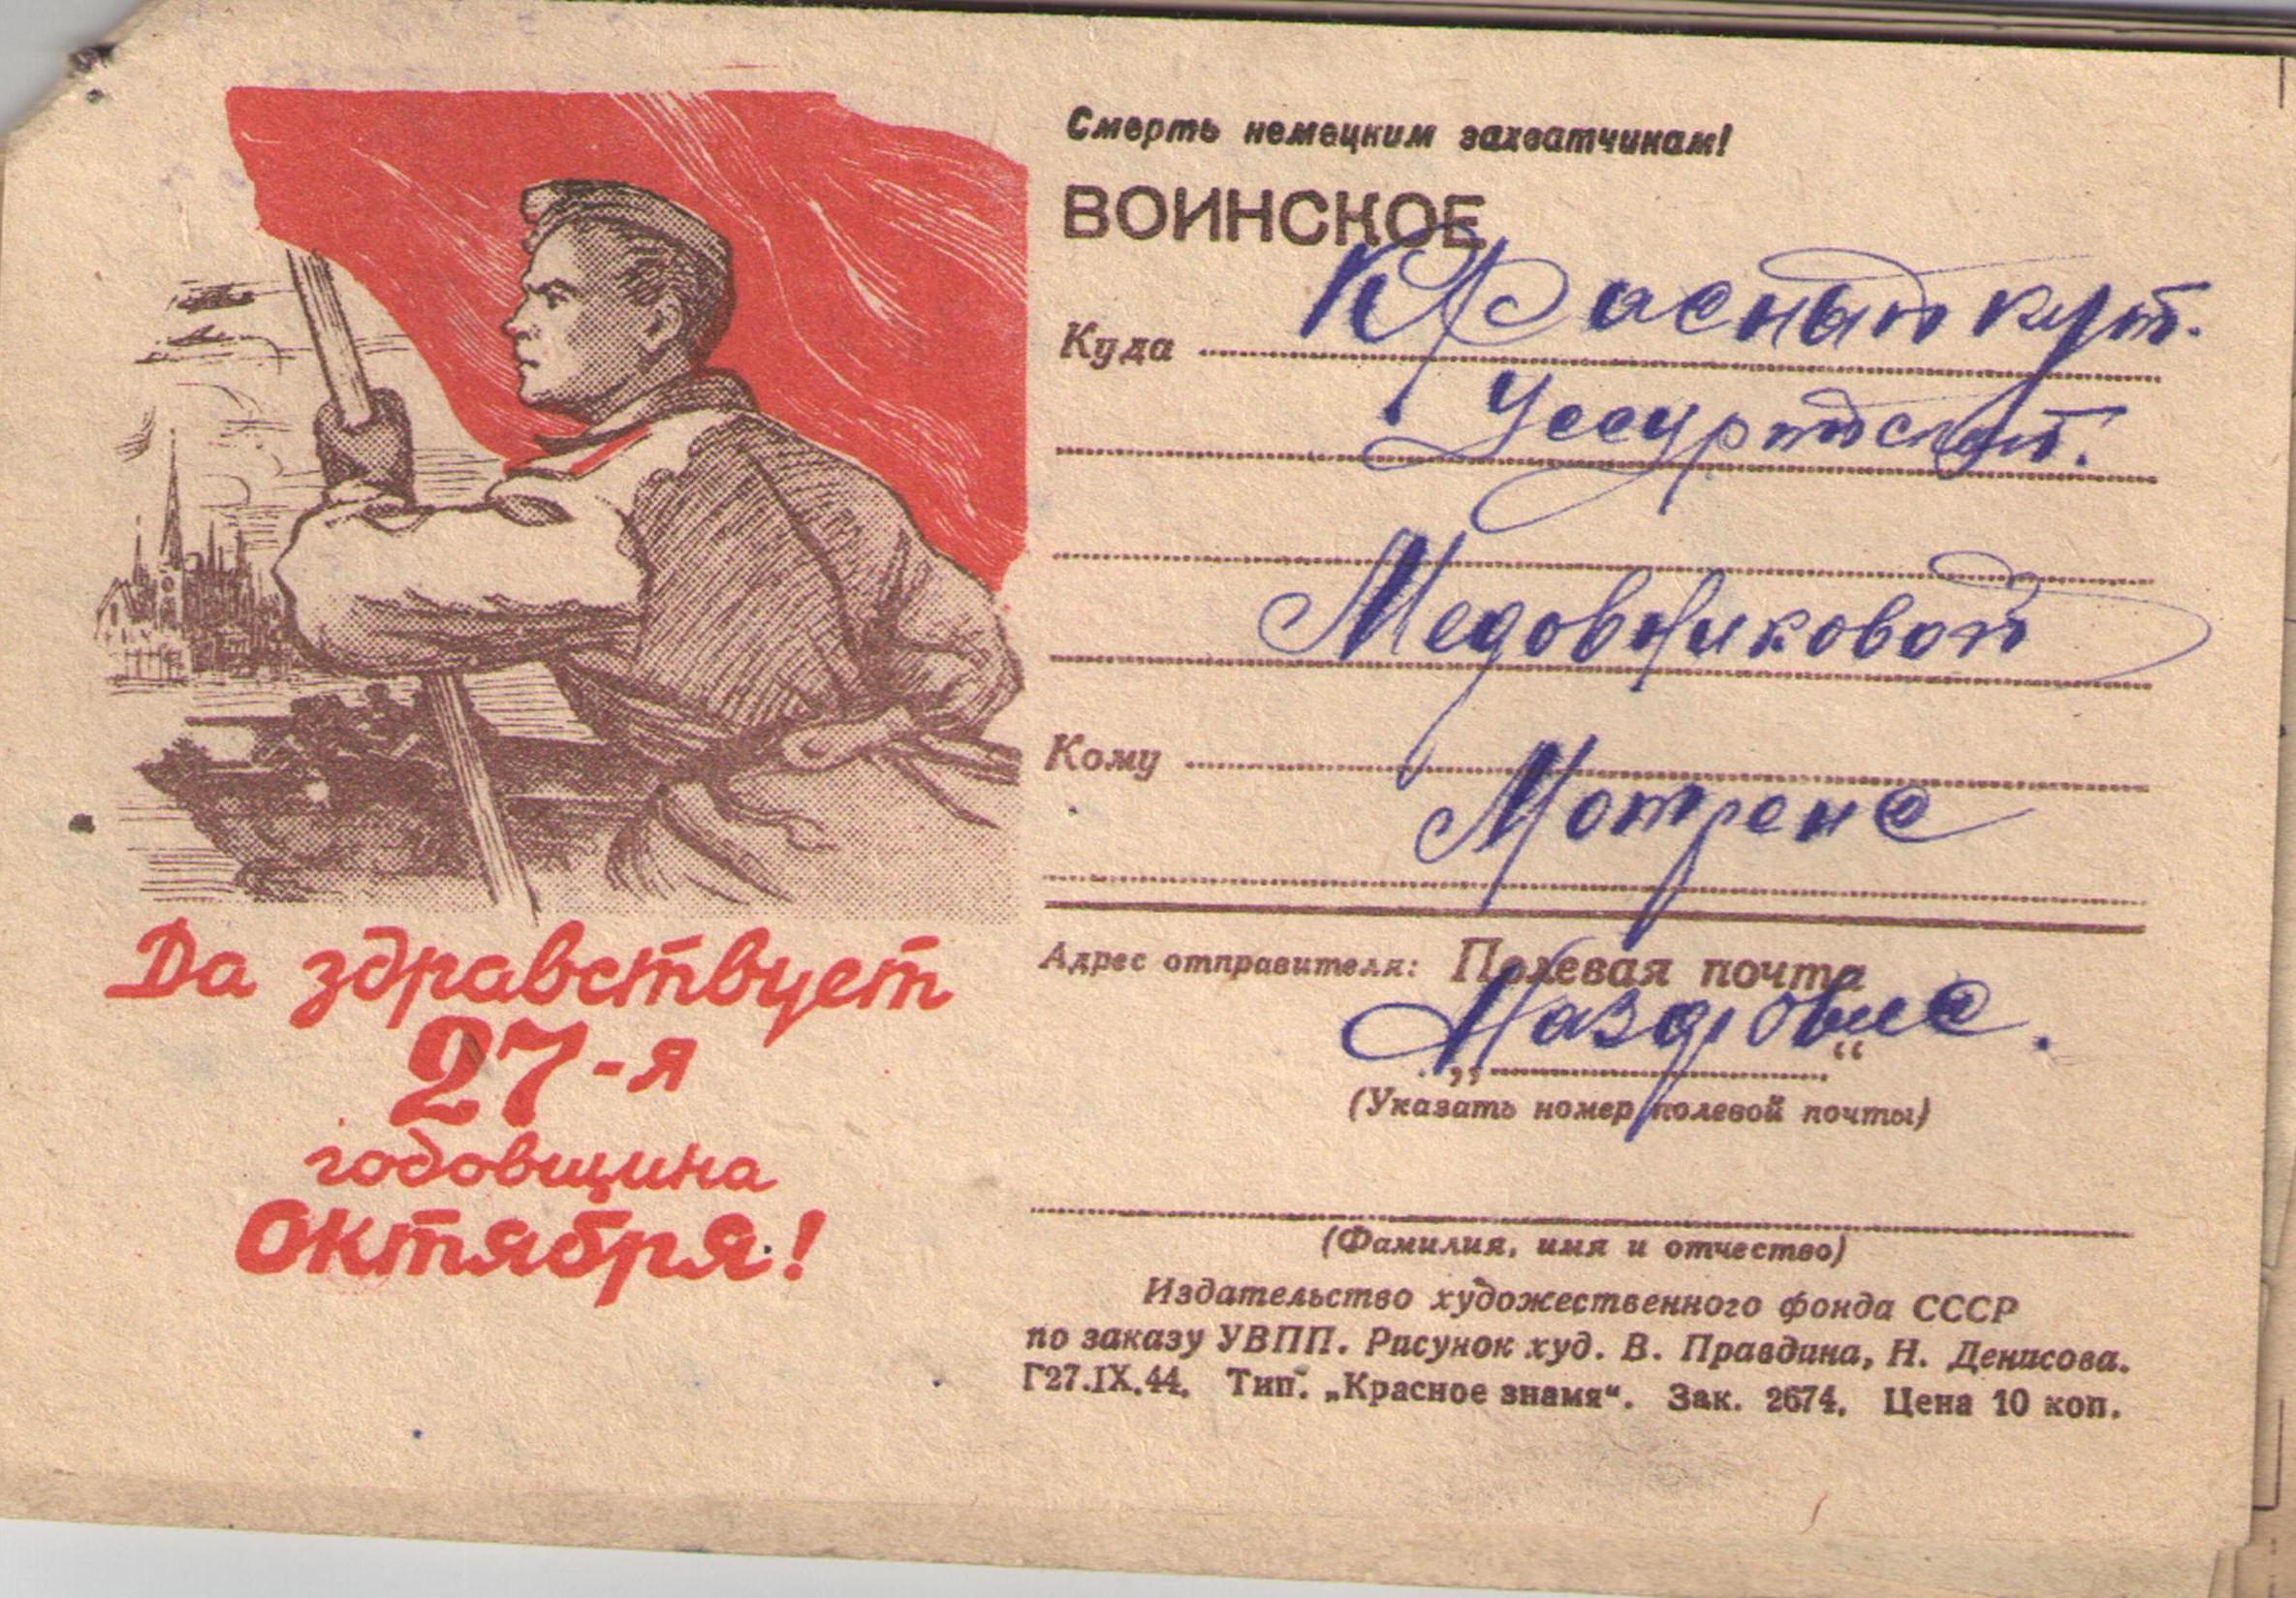 Смерть немецким захватчикам!
ВОИНСКОЕ
Куда Красный кут.
Уссурийской.
Медовниковой
Кому
Мотрене
Адрес отправителя: Полевая почта
„ “
(Указать номер полевой почты)
(Фамилия, имя и отчество)
Издательство художественного фонда СССР
по заказу УВПП. Рисунок худ. В. Правдина, Н. Денисова.
Г27.IX.44. Тип. „Красное знамя“. Зак. 2674. Цена 10 коп.
Да здравствует
27-я
годовщина
Октября!